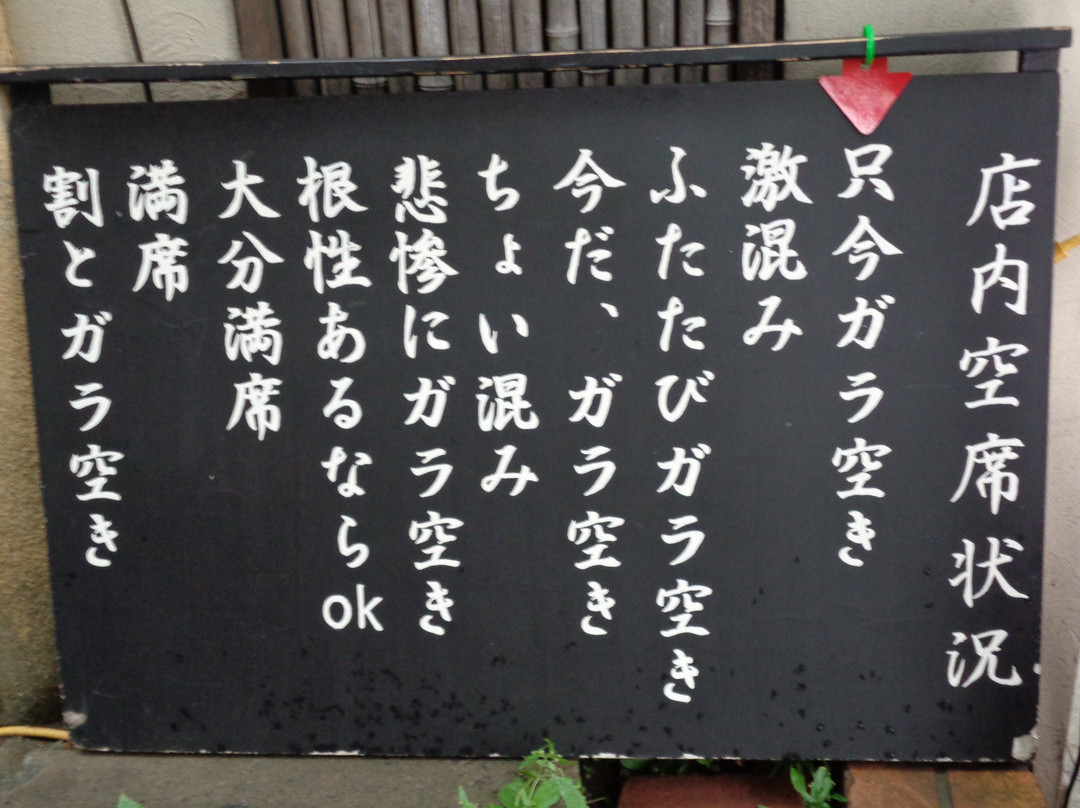 店内空席状況
只今ガラ空き
激混み
ふたたびガラ空き
今だ、ガラ空き
ちょい混み
悲惨にガラ空き
根性あるならok
大分満席
満席
割とガラ空き